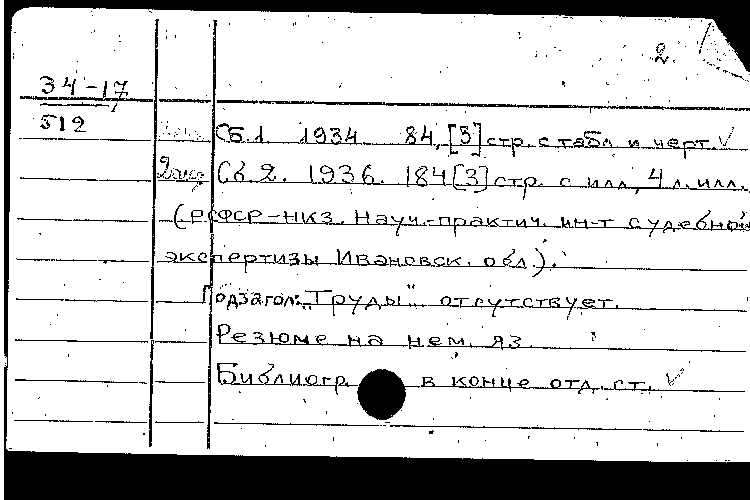 2.
34-17
512
Сб.1. 1934. 84,[3]стр. с табл. и черт.
2 экз. Сб.2. 1936. 184[3]стр. с илл., 4 л. илл.
(РСФСР-НКЗ. Науч.-практич. ин-т судебной
экспертизы Ивановск. обл.).
Подзагол: "Труды" отсутствует.
Резюме на нем. яз.
Библиогр. в конце отд. ст.